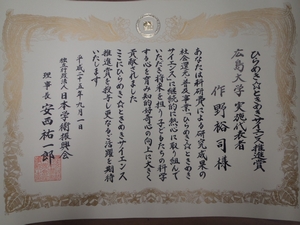 ひらめき☆ときめきサイエンス推進賞
広島大学 実施代表者
作野裕司様
あなたは科研費による研究成果の
社会還元・普及事業、ひらめき☆ときめき
サイエンスに継続的に熱心に取り組んで
いただき将来を担う子どもたちの科学
する心を育み知的好奇心の向上に大きく
貢献されました
ここにひらめき☆ときめきサイエンス
推進賞を授与し更なるご活躍を期待
いたします
平成二十五年九月一日
独立行政法人 日本学術振興会
理事長 安西祐一郎